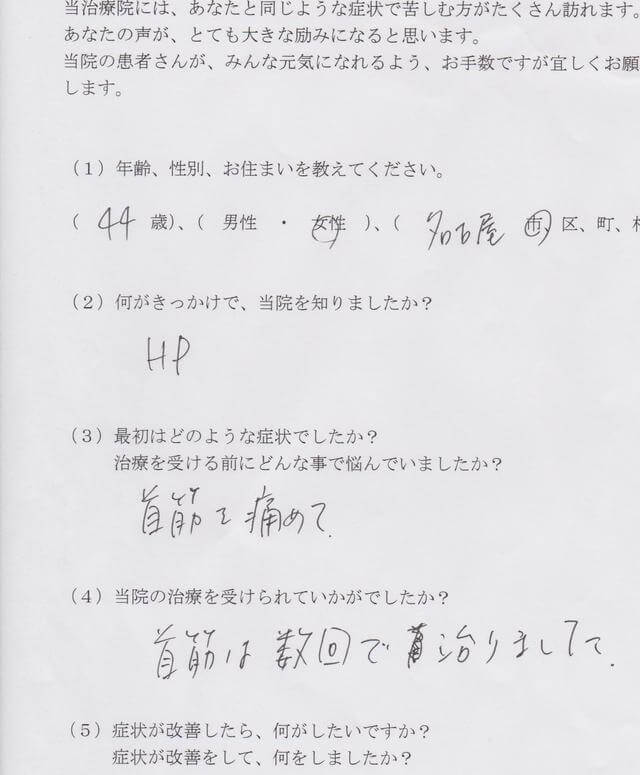 当治療院には、あなたと同じような症状で苦しむ方がたくさん訪れます。
あなたの声が、とても大きな励みになると思います。
当院の患者さんが、みんな元気になれるよう、お手数ですが宜しくお願
します。
（１）年齢、性別、お住まいを教えてください。
（ 44 歳）、（ 男性 ・ 女性 ）、（ 名古屋 市 区、町、村
（２）何がきっかけで、当院を知りましたか？
HP
（３）最初はどのような症状でしたか？
治療を受ける前にどんな事で悩んでいましたか？
首筋を痛めて.
（４）当院の治療を受けられていかがでしたか？
首筋は数回で治りまして.
（５）症状が改善したら、何がしたいですか？
症状が改善をして、何をしましたか？